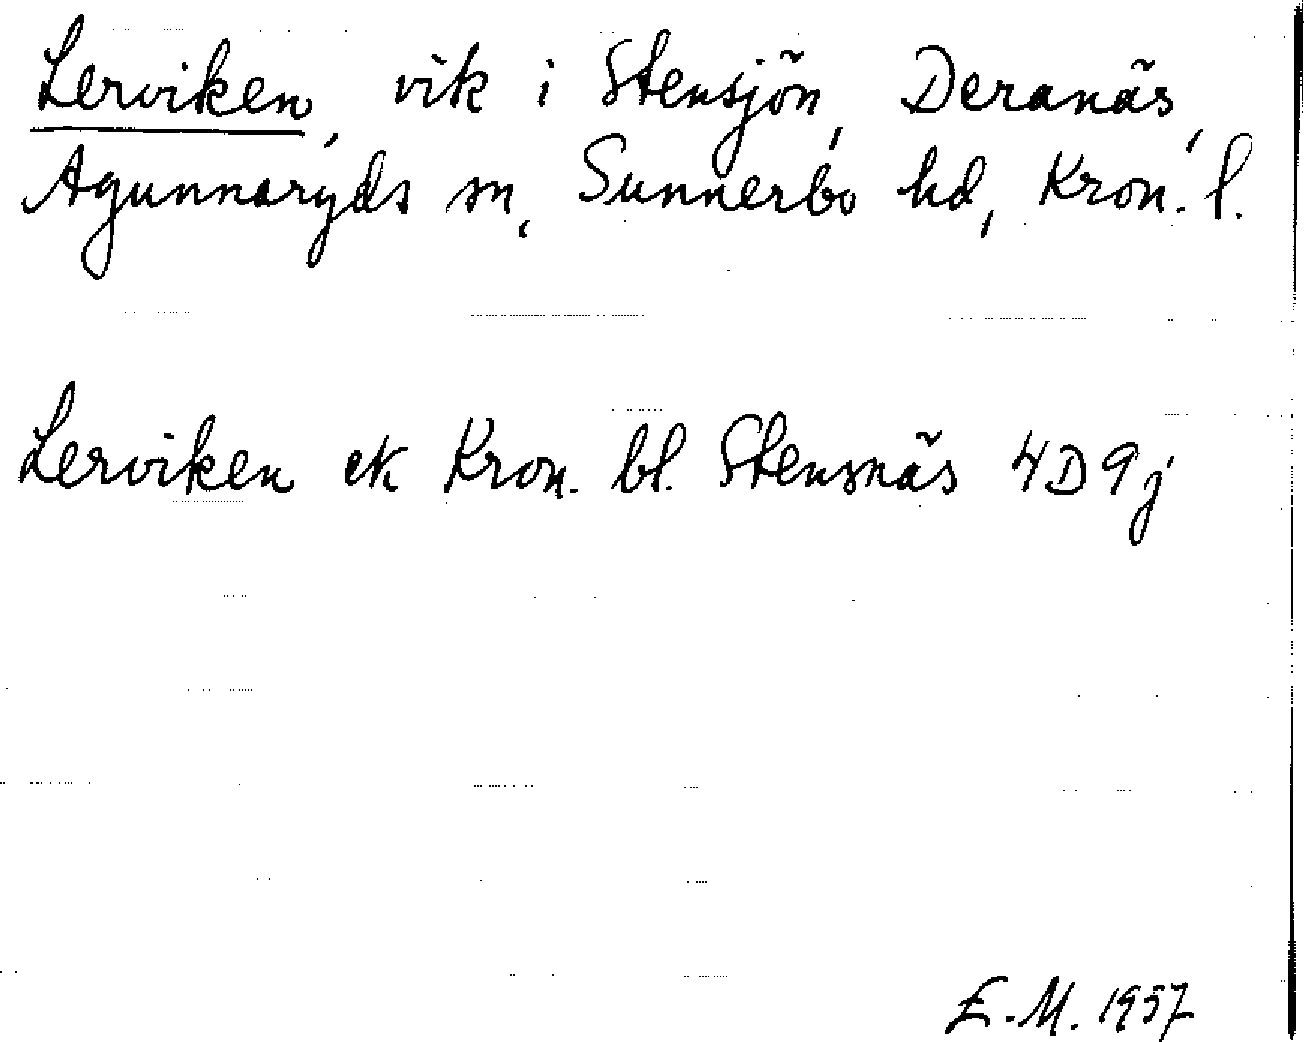 Lerviken, vik i Stensjön, Deranäs,
Agunnaryds sn, Sunnerbo hd, Kron. l.
Lerviken ek Kron. bl. Stensnäs 4D9j
E.M. 1957